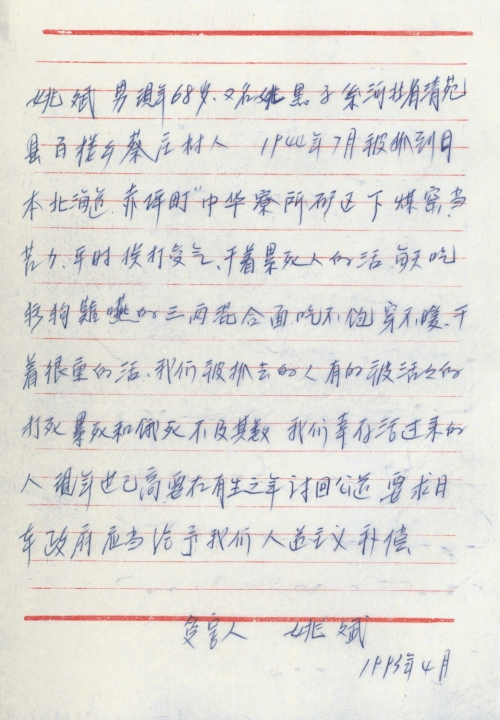 姚斌 男 现年68岁、又名姚黑子 系河北省清苑
县百楼乡蔡庄村人 1944年7月被抓到日
本北海道、赤平町"中华寮所矿区下煤窑、当
苦力、平时挨打受气、干着累死人的活、每天吃
猪狗難嚥的三两混合面、吃不饱 穿不暖、干
着很重的活、我们被抓去的人有的被活活的
打死 累死和饿死不及其数 我们幸存活过来的
人 现年世已高、要在有生之年讨回公道 要求日
本政府应当给予我们人道主义补偿
受害人 姚斌
1993年4月